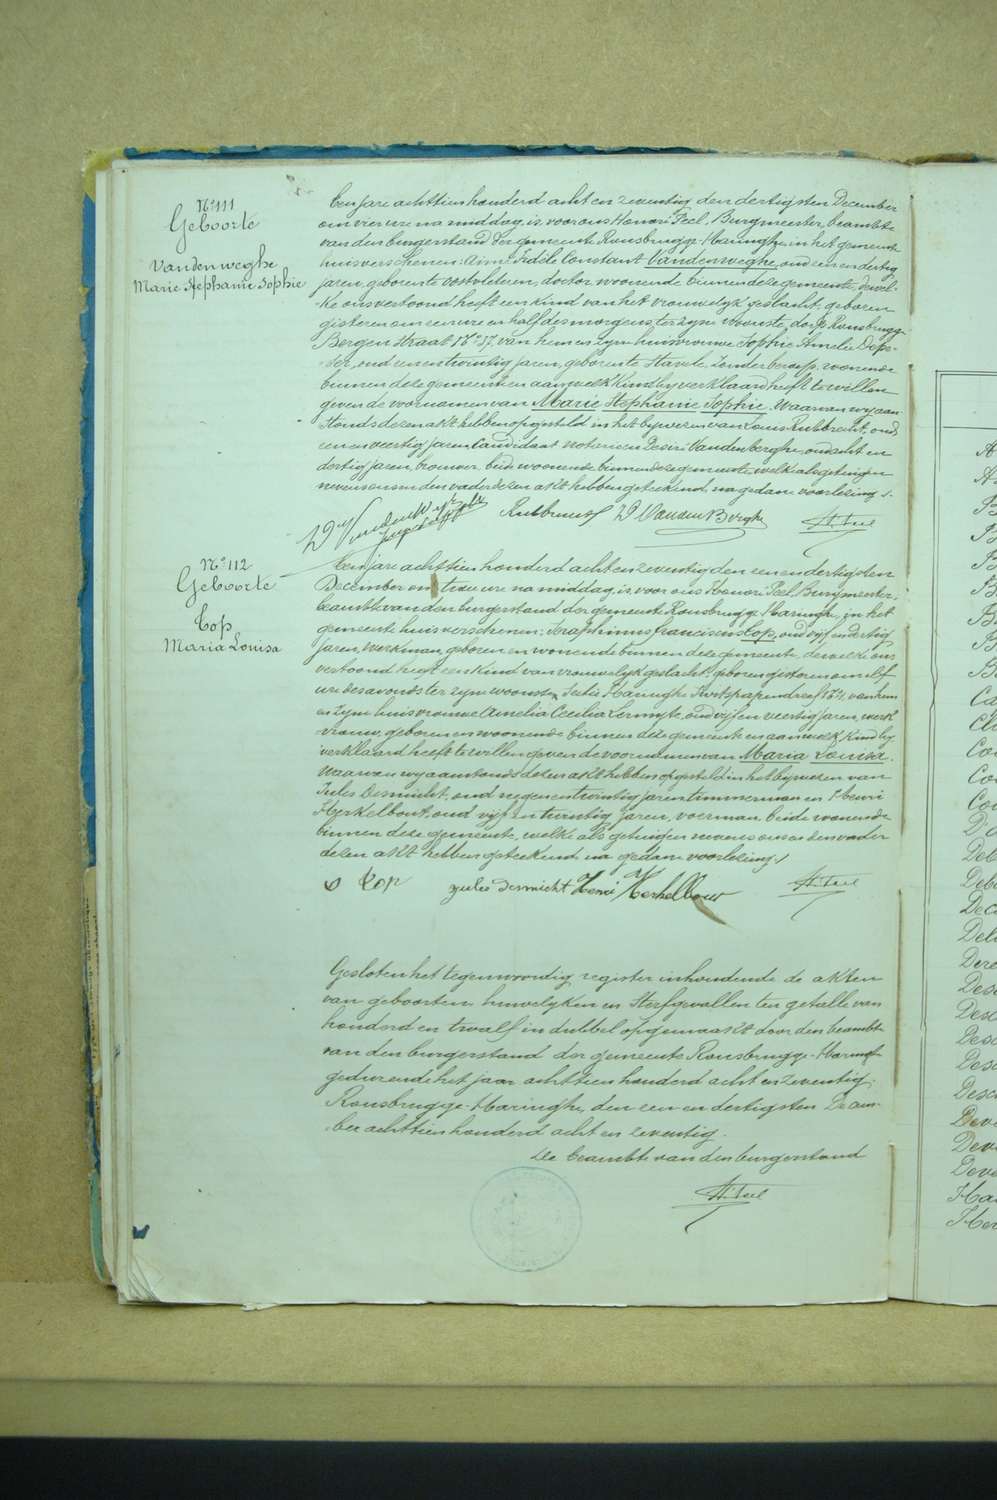 N° 111
Geboorte
Vandenweghe
Marie Stephanie Sophie
Een jare achttien honderd acht en zeventig den dertigsten December
om vier ure na middag, is voor ons Honoré Peel, Burgmeester, beambte
van den burgerstand der gemeente Rousbrugge-Haringhe, in het gemeente
huis verschenen: Aimé Fidèle Constant Vandenweghe, oud een en dertig
jaren, geboren te Westvleteren, doctor, woonende binnen deze gemeente, dewel-
ke ons vertoond heeft een kind van het vrouwelyk geslacht, geboren
gisteren om een ure en half des morgens, ter zyner woonste, dorp Rousbrugge
Bergen Straat N° 37, van hem en zyne huisvrouwe Sophie Amelie
oud een en twintig jaren, geboren te Stavele, zonder beroep, woonende
binnen deze gemeente en aan welk kind hy verklaard heeft te willen
geven de voornamen van Marie Stephanie Sophie. Waarvan wy aan
stonds dezen akt hebben opgesteld in het bywezen van Louis Rubbrecht, oud
een en veertig jaren, Candidaat Notaris en Desiré Vandenberghe, oud acht en
dertig jaren, brouwer, beide woonende binnen deze gemeente, welke als getuigen
nevens ons en den vader dezen akt hebben geteekend, na gedane voorlezing ./.
Rubbrecht D Vanden Berghe H. Peel
N° 112
Geboorte
Top
Maria Louisa
Een jare achttien honderd acht en zeventig den een en dertigsten
December om twee ure na middag, is voor ons Honoré Peel, Burgmeester,
beambte van den burgerstand der gemeente Rousbrugge-Haringhe, in het
gemeente huis verschenen: Seraphinus franciscus Top, oud vijf en dertig
jaren, werkman, geboren en woonende binnen deze gemeente, dewelke ons
vertoond heeft een kind van vrouwelyk geslacht, geboren gisteren om elf
ure des avonds ter zyne woonste, Sectie Haringhe N° 71, van hem
en zyne huisvrouwe Amelia Cecilia Lermyte, oud vijf en veertig jaren, werk
vrouw, geboren en woonende binnen deze gemeente en aan welk kind hy
verklaard heeft te willen geven de voornamen van Maria Louisa.
Waarvan wy aanstonds dezen akt hebben opgesteld in het bywezen van
Jules Desmicht, oud negen en twintig jaren, timmerman en Henri
Herkelbout, oud vijf en twintig jaren, voerman, beide woonende
binnen deze gemeente, welke als getuigen nevens ons en den vader
dezen akt hebben geteekend, na gedane voorlezing ./
S Top jules Desmicht Henri Herkelbout H. Peel
Gesloten het tegenwoordig register inhoudende de akten
van geboorten, huwelyken en sterfgevallen ten getalle van
honderd en twalf in dubbel opgemaakt door den beambte
van den burgerstand der gemeente Rousbrugge-Haringhe
gedurende het jaar achttien honderd acht en zeventig.
Rousbrugge-Haringhe, den een en dertigsten Decem-
ber achttien honderd acht en zeventig.
De beambte van den burgerstand
H. Peel